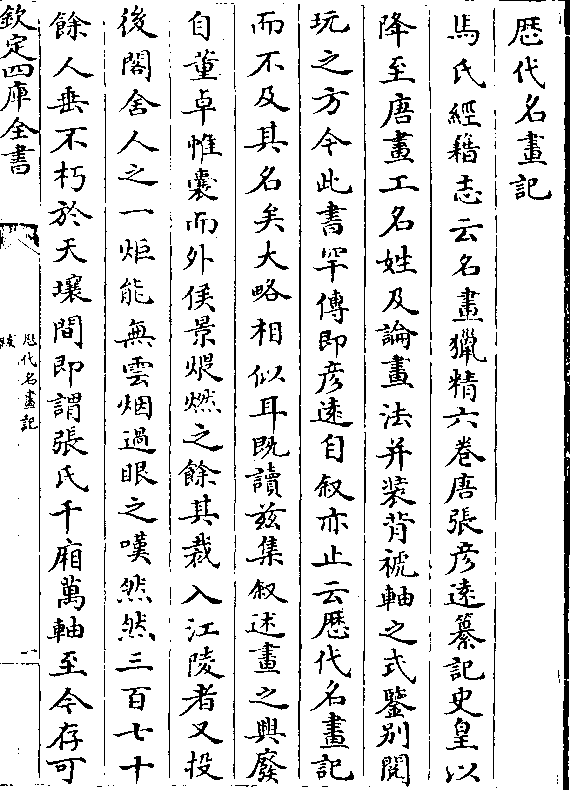 歷代名畫記
馬氏經籍志云名畫獵精六卷唐張彦逺纂記史皇以
降至唐畫工名姓及論畫法并装背褫軸之式鑒別閱
玩之方今此書罕傳即彦逺自叙亦止云歷代名畫記
而不及其名矣大略相似耳既讀兹集叙述畫之興廢
自董卓帷囊而外侯景煨燃之餘其裁入江陵者又投
後閣舍人之一炬能無雲烟過眼之嘆然然三百七十
餘人垂不朽於天壤間即謂張氏千廂萬軸至今存可
欽定四庫全書
歷代名畫記
跋
一